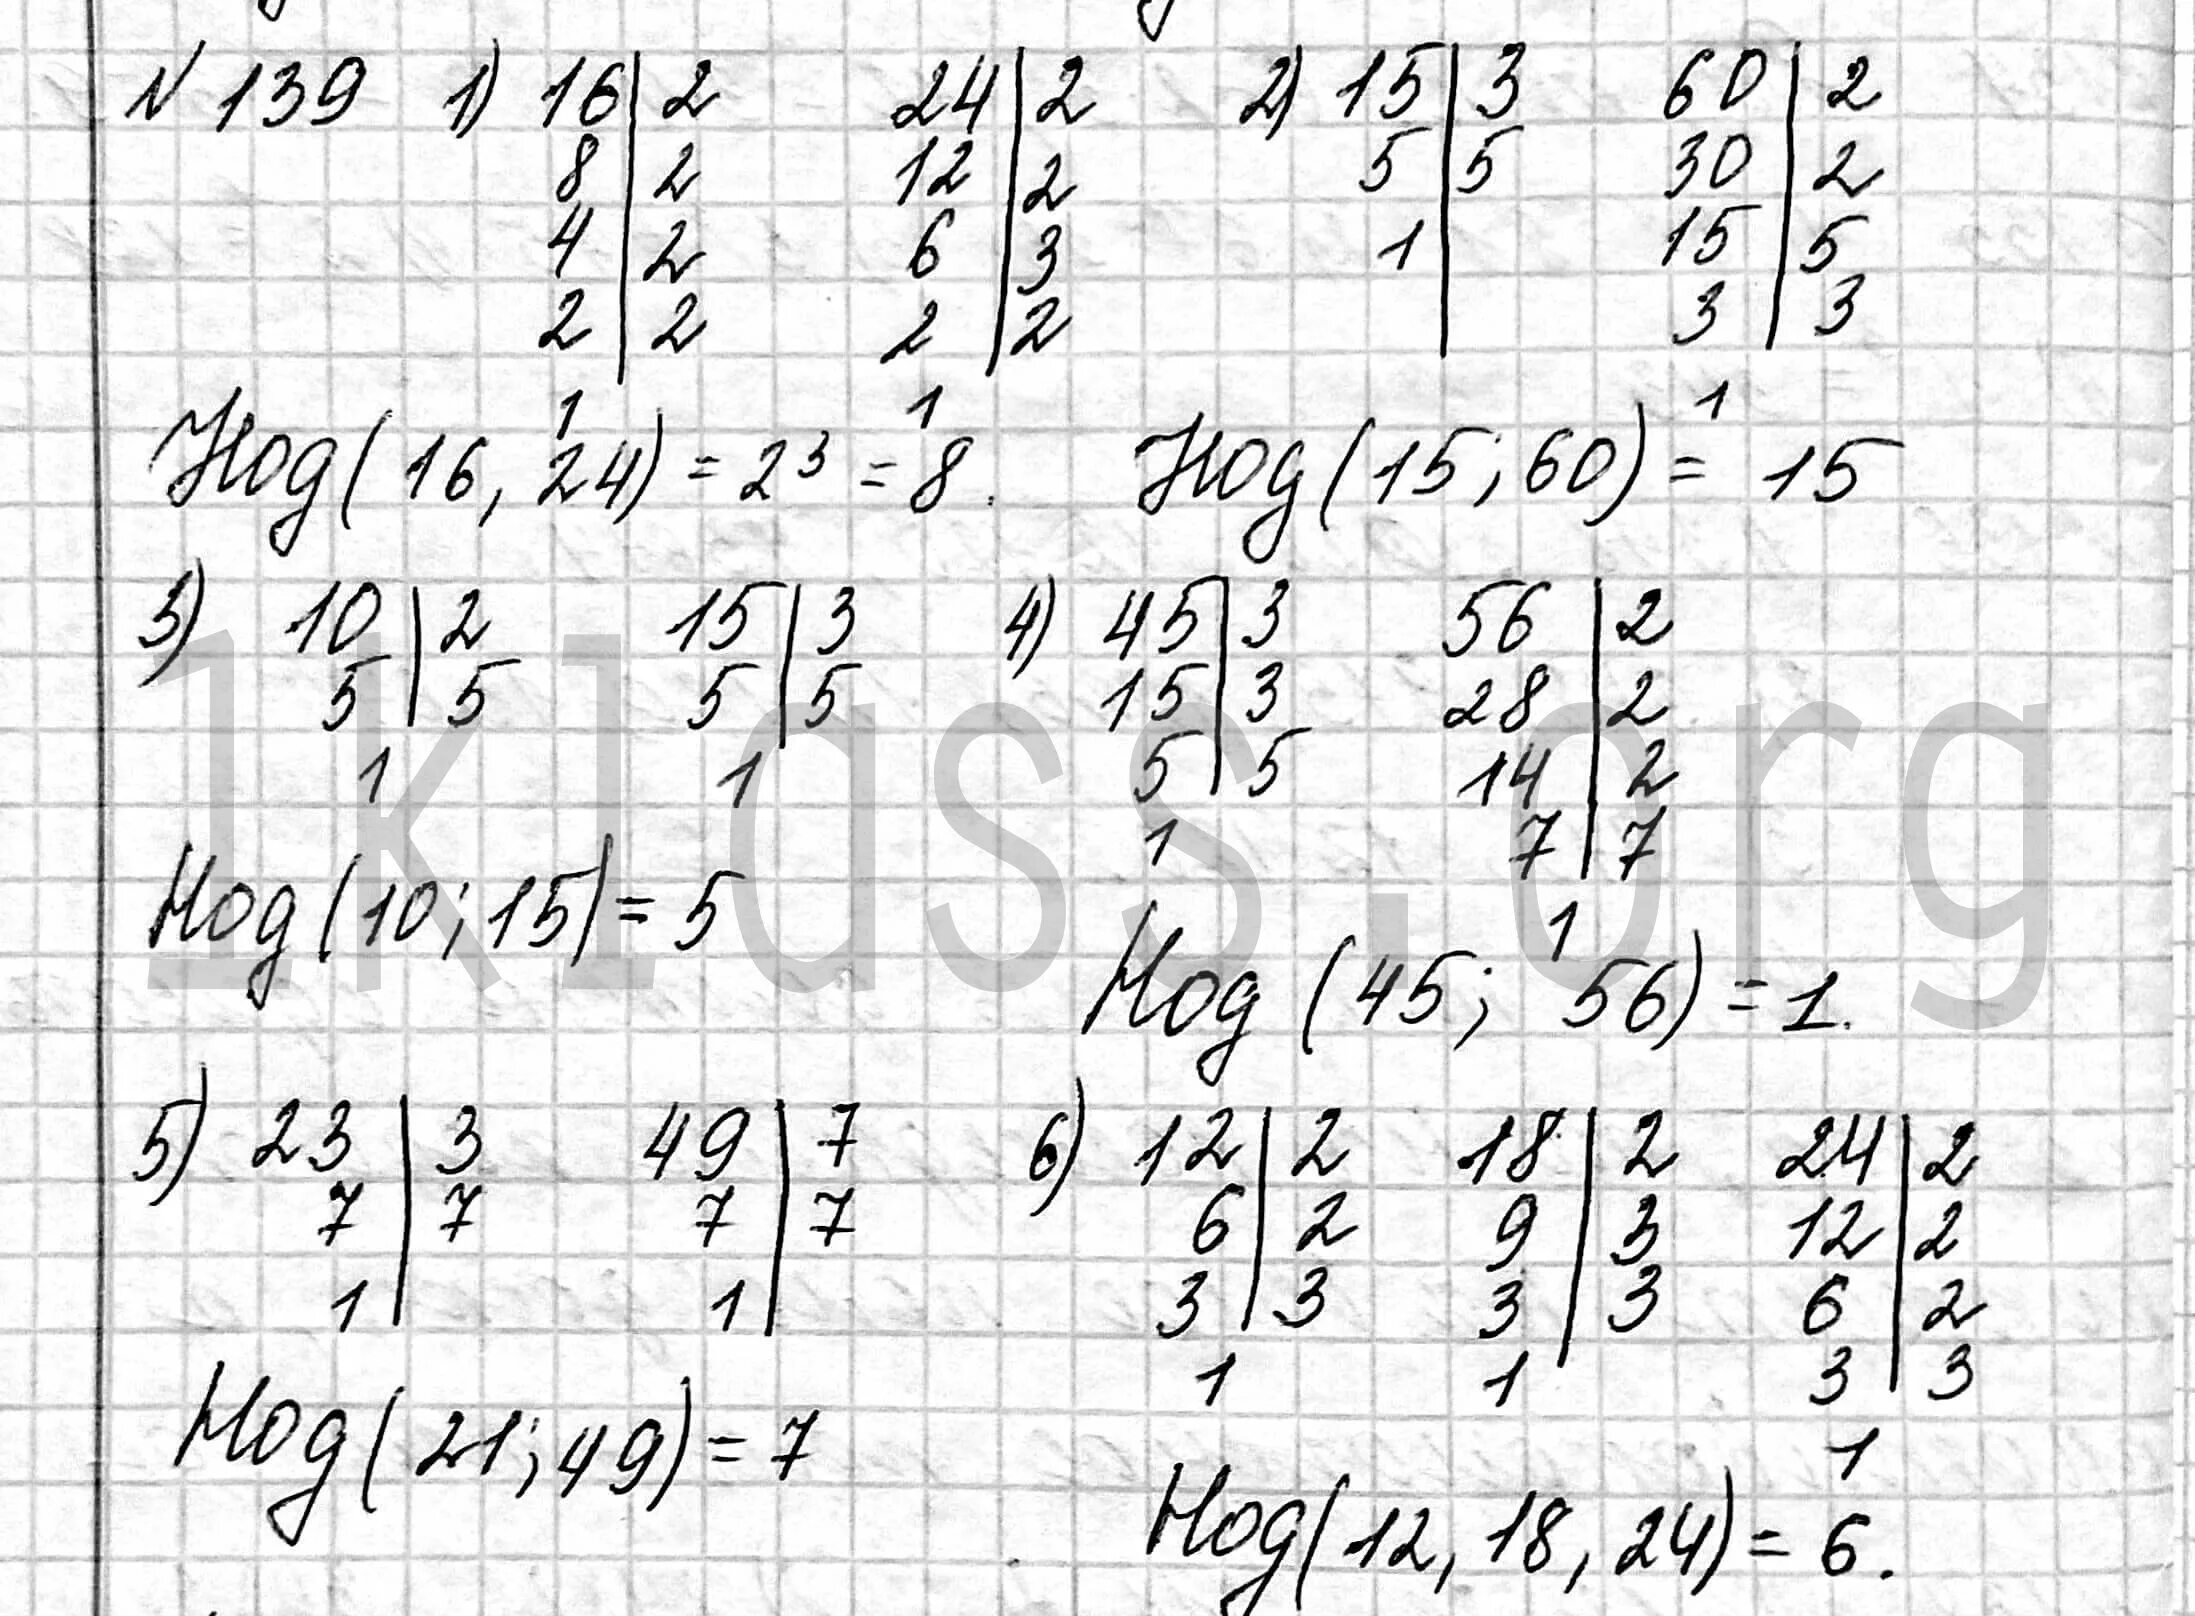 N 139 1) 16 | 2 24 | 2 2) 15 | 3 60 | 2
8 | 2 12 | 2 5 | 5 30 | 2
4 | 2 6 | 3 1 | 15 | 5
2 | 2 2 | 2 3 | 3
1 1 1
Нод(16, 24) = 2³ = 8. Нод(15; 60) = 15
3) 10 | 2 15 | 3 4) 45 | 3 56 | 2
5 | 5 5 | 5 15 | 3 28 | 2
1 1 5 | 5 14 | 2
1 7 | 7
Нод(10; 15) = 5 1
Нод (45; 56) = 1.
5) 23 | 3 49 | 7 6) 12 | 2 18 | 2 24 | 2
7 | 7 7 | 7 6 | 2 9 | 3 12 | 2
1 | 1 | 3 | 3 3 | 3 6 | 2
1 1 3 | 3
Нод(21; 49) = 7 1
Нод(12, 18, 24) = 6.
1klass.org